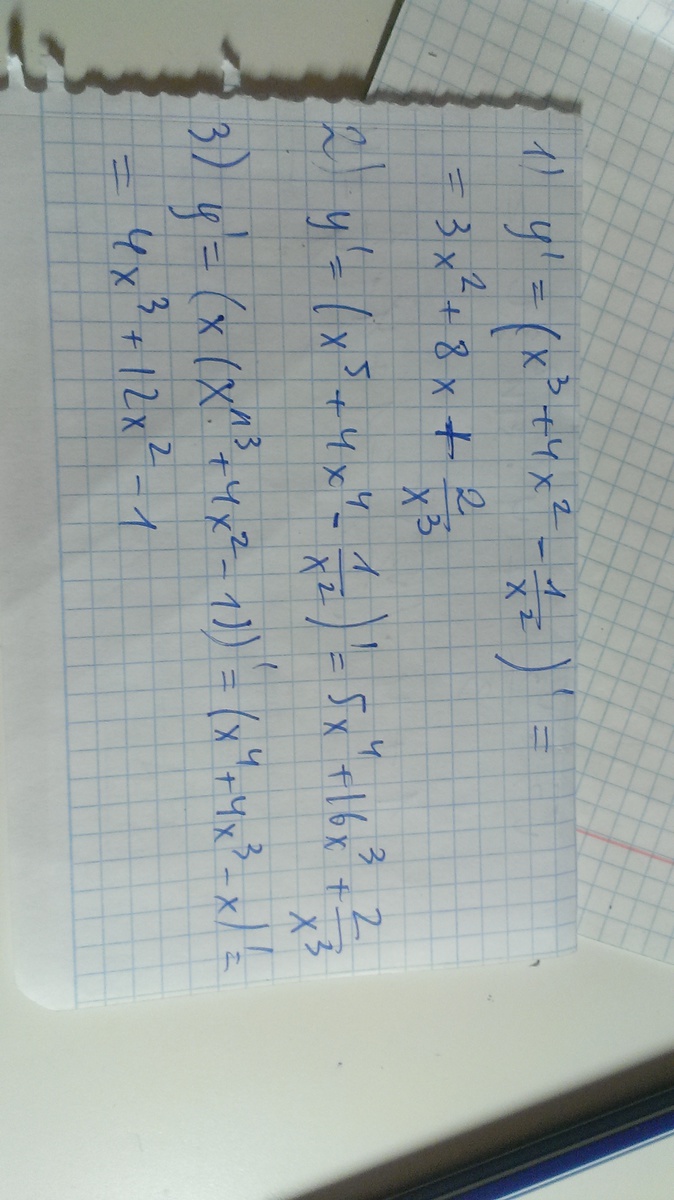 1) y' = (x³ + 4x² - 1/x²)' =
= 3x² + 8x + 2/x³
2) y' = (x⁵ + 4x⁴ - 1/x²)' = 5x⁴ + 16x³ + 2/x³
3) y' = (x(x³ + 4x² - 1))' = (x⁴ + 4x³ - x)' =
= 4x³ + 12x² - 1